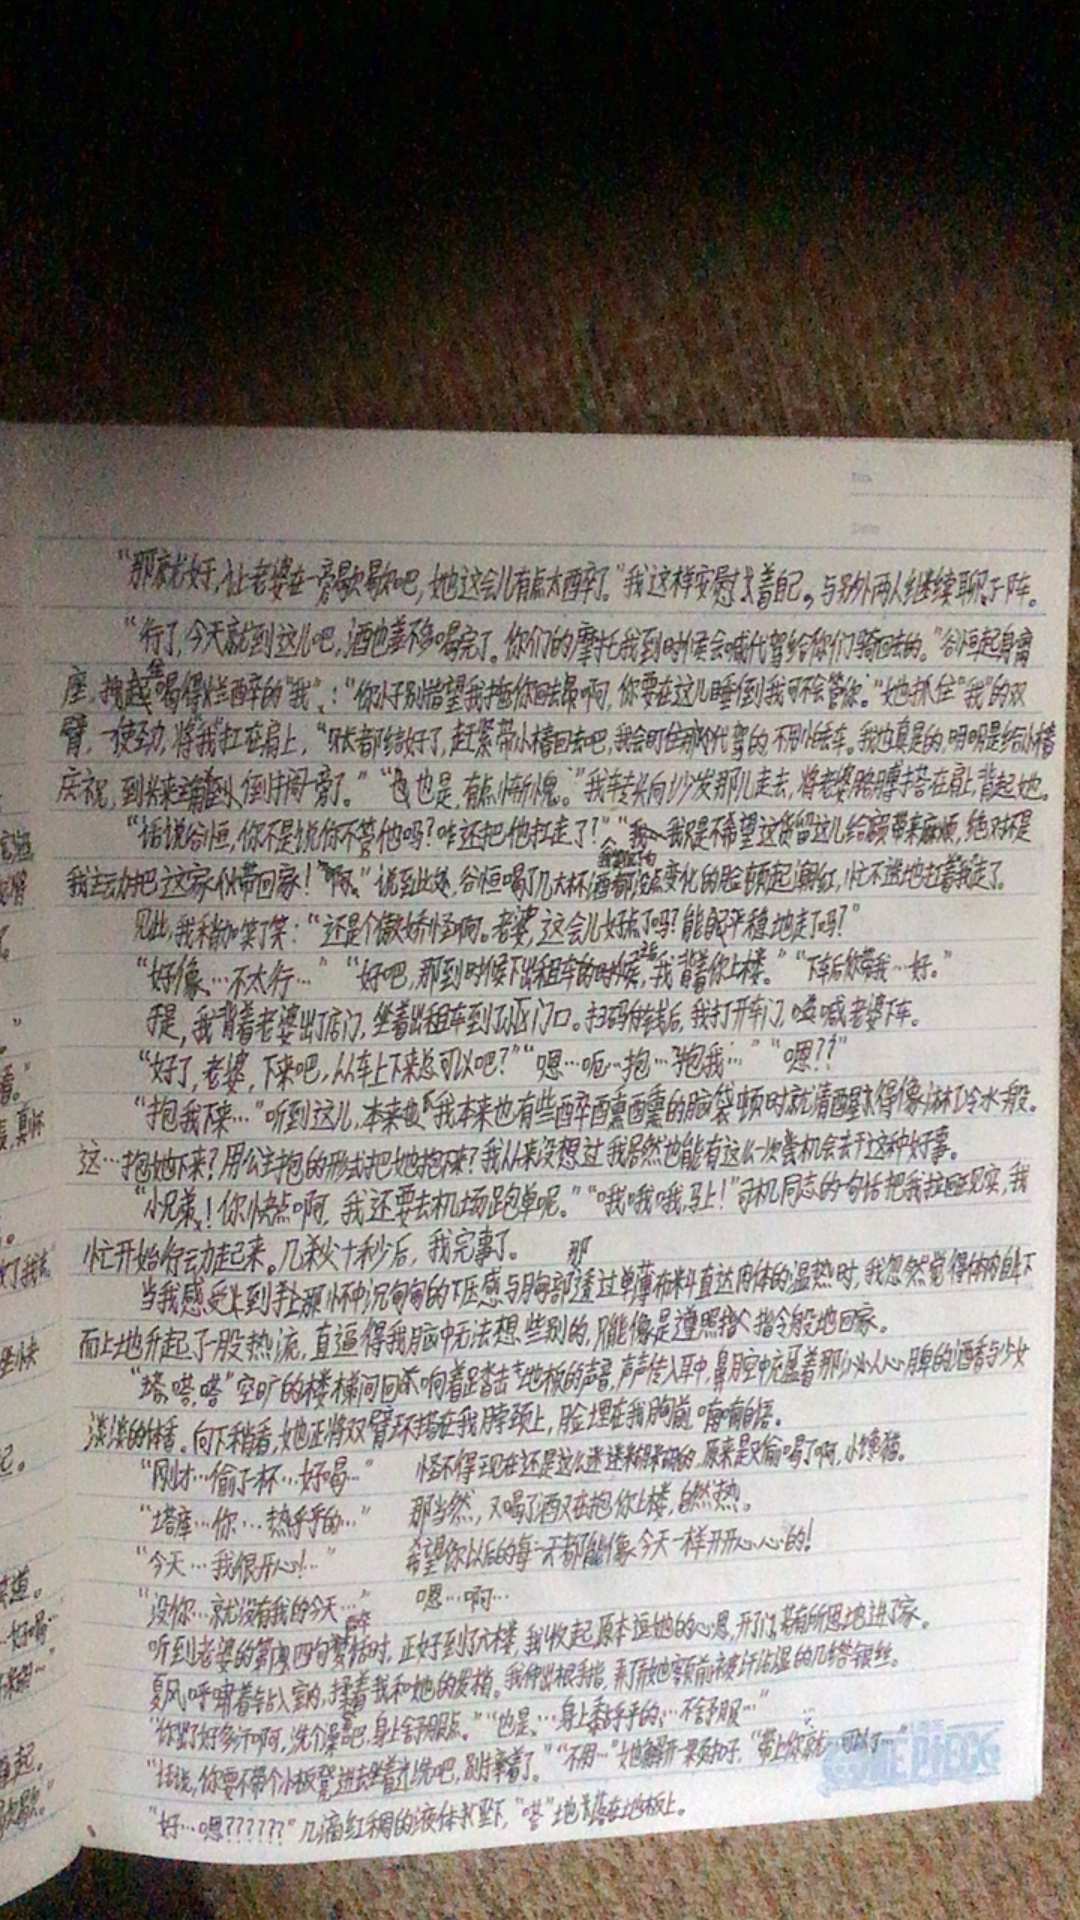 “那就好，让老婆在一旁歇歇吧，她这会儿有点太醉了。”我这样安慰着自己，与另外两人继续聊了一阵。
“行了，今天就到这儿吧，酒也差不多喝完了。你们的摩托我到时候会喊代驾给你们骑回去的。”谷恒起身离
座，拽起喝得烂醉的“我”：“你小子别指望我拖你回去啊，你要在这儿睡倒我可不会管你。”她抓住“我”的双
臂，一使劲，将“我”扛在肩上，“账都结好了，赶紧带小椿回去吧，我会盯住那个代驾的，不用小车。我也真是的，明明是给小椿
庆祝，到头来倒闹一旁了。”“也是，有点小惭愧。”我转头向沙发那儿走去，将老婆胳膊搭在肩上，背起她。
“话说谷恒，你不是说你不管他吗？咋还把他扛走了？”“我只是不希望这货留这儿给店带来麻烦，绝对不是
我主动把这家伙带回家！啊。”说到此处，谷恒喝了几大杯酒都没点变化的脸顿起潮红，忙不迭地扛着我走了。
见此，我稍加笑了笑：“还是个傲娇怪啊。老婆，这会儿好点了吗？能平稳地走了吗？”
“好像…不太行…”“好吧，那到时候下出租车的时候，我背着你上楼。”“下车后你带我…好。”
于是，我背着老婆出了店门，坐着出租车到了小区门口。扫码付钱后，我打开车门，唤喊老婆下车。
“好了，老婆，下来吧，从车上下来总可以吧？”“嗯…呃…抱…抱我…”“嗯？？”
“抱我下来…”听到这儿，我本来也有些醉醺醺的脑袋顿时就清醒得像淋了冷水一般。
这…抱她下来？用公主抱的形式把她抱下来？我从来没想过我居然也能有这么一次机会去干这种好事。
“小兄弟！你快点啊，我还要去机场跑单呢。”“哦哦哦，马上！”司机同志的一句话把我拉回现实，我
忙开始行动起来。几秒十秒后，我完事了。
当我感受到那怀中沉甸甸的下压感与胸部透过单薄布料直达肉体的温热时，我忽然觉得体内自下
而上地升起了一股热流，直逼得我脑中无法想些别的，只能像是遵照指令般地回家。
“嗒，嗒，嗒”空旷的楼梯间回响着足踏击地板的声音，声声传入耳中，鼻腔中充盈着那沁人心脾的酒香与少女
淡淡的体香。向下稍看，她正将双臂环搭在我脖颈上，脸埋在我胸前，喃喃自语。
“刚才…偷了一杯…好喝…” 怪不得现在还是这么迷迷糊糊的，原来是又偷喝了啊，小馋猫。
“塔库…你…热乎乎的…” 那当然，又喝了酒又在抱你上楼，自然热。
“今天…我很开心！…” 希望你以后的每一天都能像今天一样开开心心的！
“没你…就没有我的今天…” 嗯…啊…
听到老婆的第四句醉话时，正好到了六楼，我收起原本逗她的心思，开了门，若有所思地进了家。
夏风呼啸着钻入室内，揉着我和她的发梢。我伸出根手指，弄了散她额前被汗沾湿的几绺银丝。
“你出了好多汗啊，洗个澡吧，身上舒服点。”“也是…身上黏乎乎的…不舒服…”
“话说，你要不带个小板凳进去坐着洗吧，别摔着了。”“不用…”她解开一颗扣子，“带上你就…可以了…”
“好…嗯？？？？？？”几滴红稠的液体坠下，“嗒”地落在地板上。
ONE PIECE